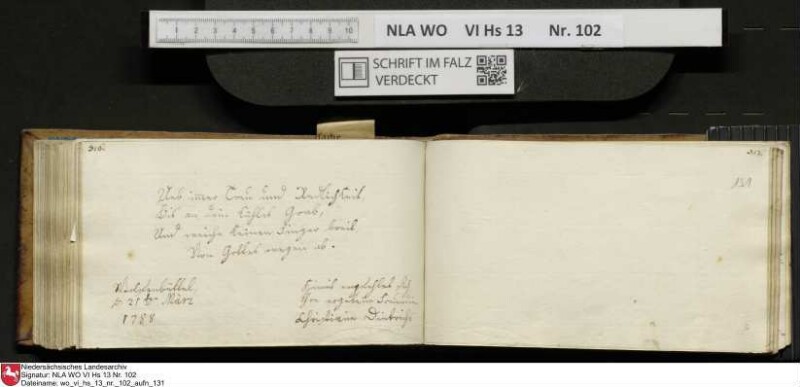 1 2 3 4 5 6 7 8 9 10
NLA WO VI Hs 13 Nr. 102
SCHRIFT IM FALZ
VERDECKT
310.
312.
131
Ueb immer Treu und Redlichkeit,
Bis an dein kühles Grab,
Und weiche keinen Finger breit
Von Gottes wegen ab.
d 21 März
1788
Hiemit empfiehlet sich
Ihre ergebene Freundin
Christiane
Niedersächsisches Landesarchiv
Signatur: NLA WO VI Hs 13 Nr. 102
Dateiname: wo_vi_hs_13_nr._102_aufn_131